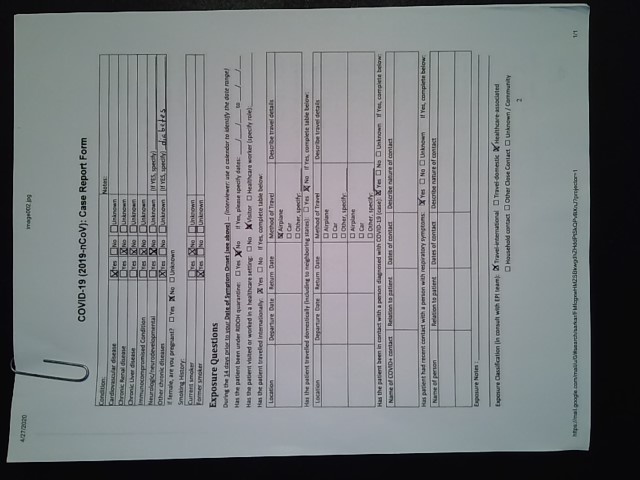 4/27/2020 image002.jpg
COVID-19 (2019-nCoV): Case Report Form
Condition: Notes:
Cardiovascular disease ☒Yes ☐No ☐Unknown
Chronic Renal disease ☐Yes ☒No ☐Unknown
Chronic Liver disease ☐Yes ☒No ☐Unknown
Immunocompromised Condition ☐Yes ☒No ☐Unknown
Neurologic/neurodevelopmental ☐Yes ☒No ☐Unknown (If YES, specify)
Other chronic diseases ☒Yes ☐No ☐Unknown (If YES, specify) diabites
If female, are you pregnant? ☐ Yes ☒ No ☐ Unknown
Smoking History:
Current smoker ☐Yes ☒No ☐Unknown
Former smoker ☒Yes ☐No ☐Unknown
Exposure Questions
During the 14 days prior to your Date of Symptom Onset (see above) – (Interviewer: use a calendar to identify the date range)
Has the patient been under RDOH quarantine: ☐ Yes ☒ No If Yes, please specify dates: __/__/__ to __/__/__
Has the patient visited or worked in a healthcare setting: ☐ No ☒ Visitor ☐ Healthcare worker (specify role)
Has the patient travelled internationally: ☒ Yes ☐ No If Yes, complete table below:
Location Departure Date Return Date Method of Travel Describe travel details
☒ Airplane
☐ Car
☐ Other, specify:
Has the patient travelled domestically (including to neighboring states) ☐ Yes ☒ No If Yes, complete table below:
Location Departure Date Return Date Method of Travel Describe travel details
☐ Airplane
☐ Car
☐ Other, specify:
☐ Airplane
☐ Car
☐ Other, specify:
Has the patient been in contact with a person diagnosed with COVID-19 (case) ☒ Yes ☐ No ☐ Unknown If Yes, complete below:
Name of COVID+ contact Relation to patient Dates of contact Describe nature of contact
Has patient had recent contact with a person with respiratory symptoms: ☒ Yes ☐ No ☐ Unknown If Yes, complete below:
Name of person Relation to patient Dates of contact Describe nature of contact
Exposure Notes:
Exposure Classification (in consult with EPI team): ☒ Travel-international ☐ Travel-domestic ☒ Healthcare-associated
☐ Household contact ☐ Other Close Contact ☐ Unknown / Community
2
1/1